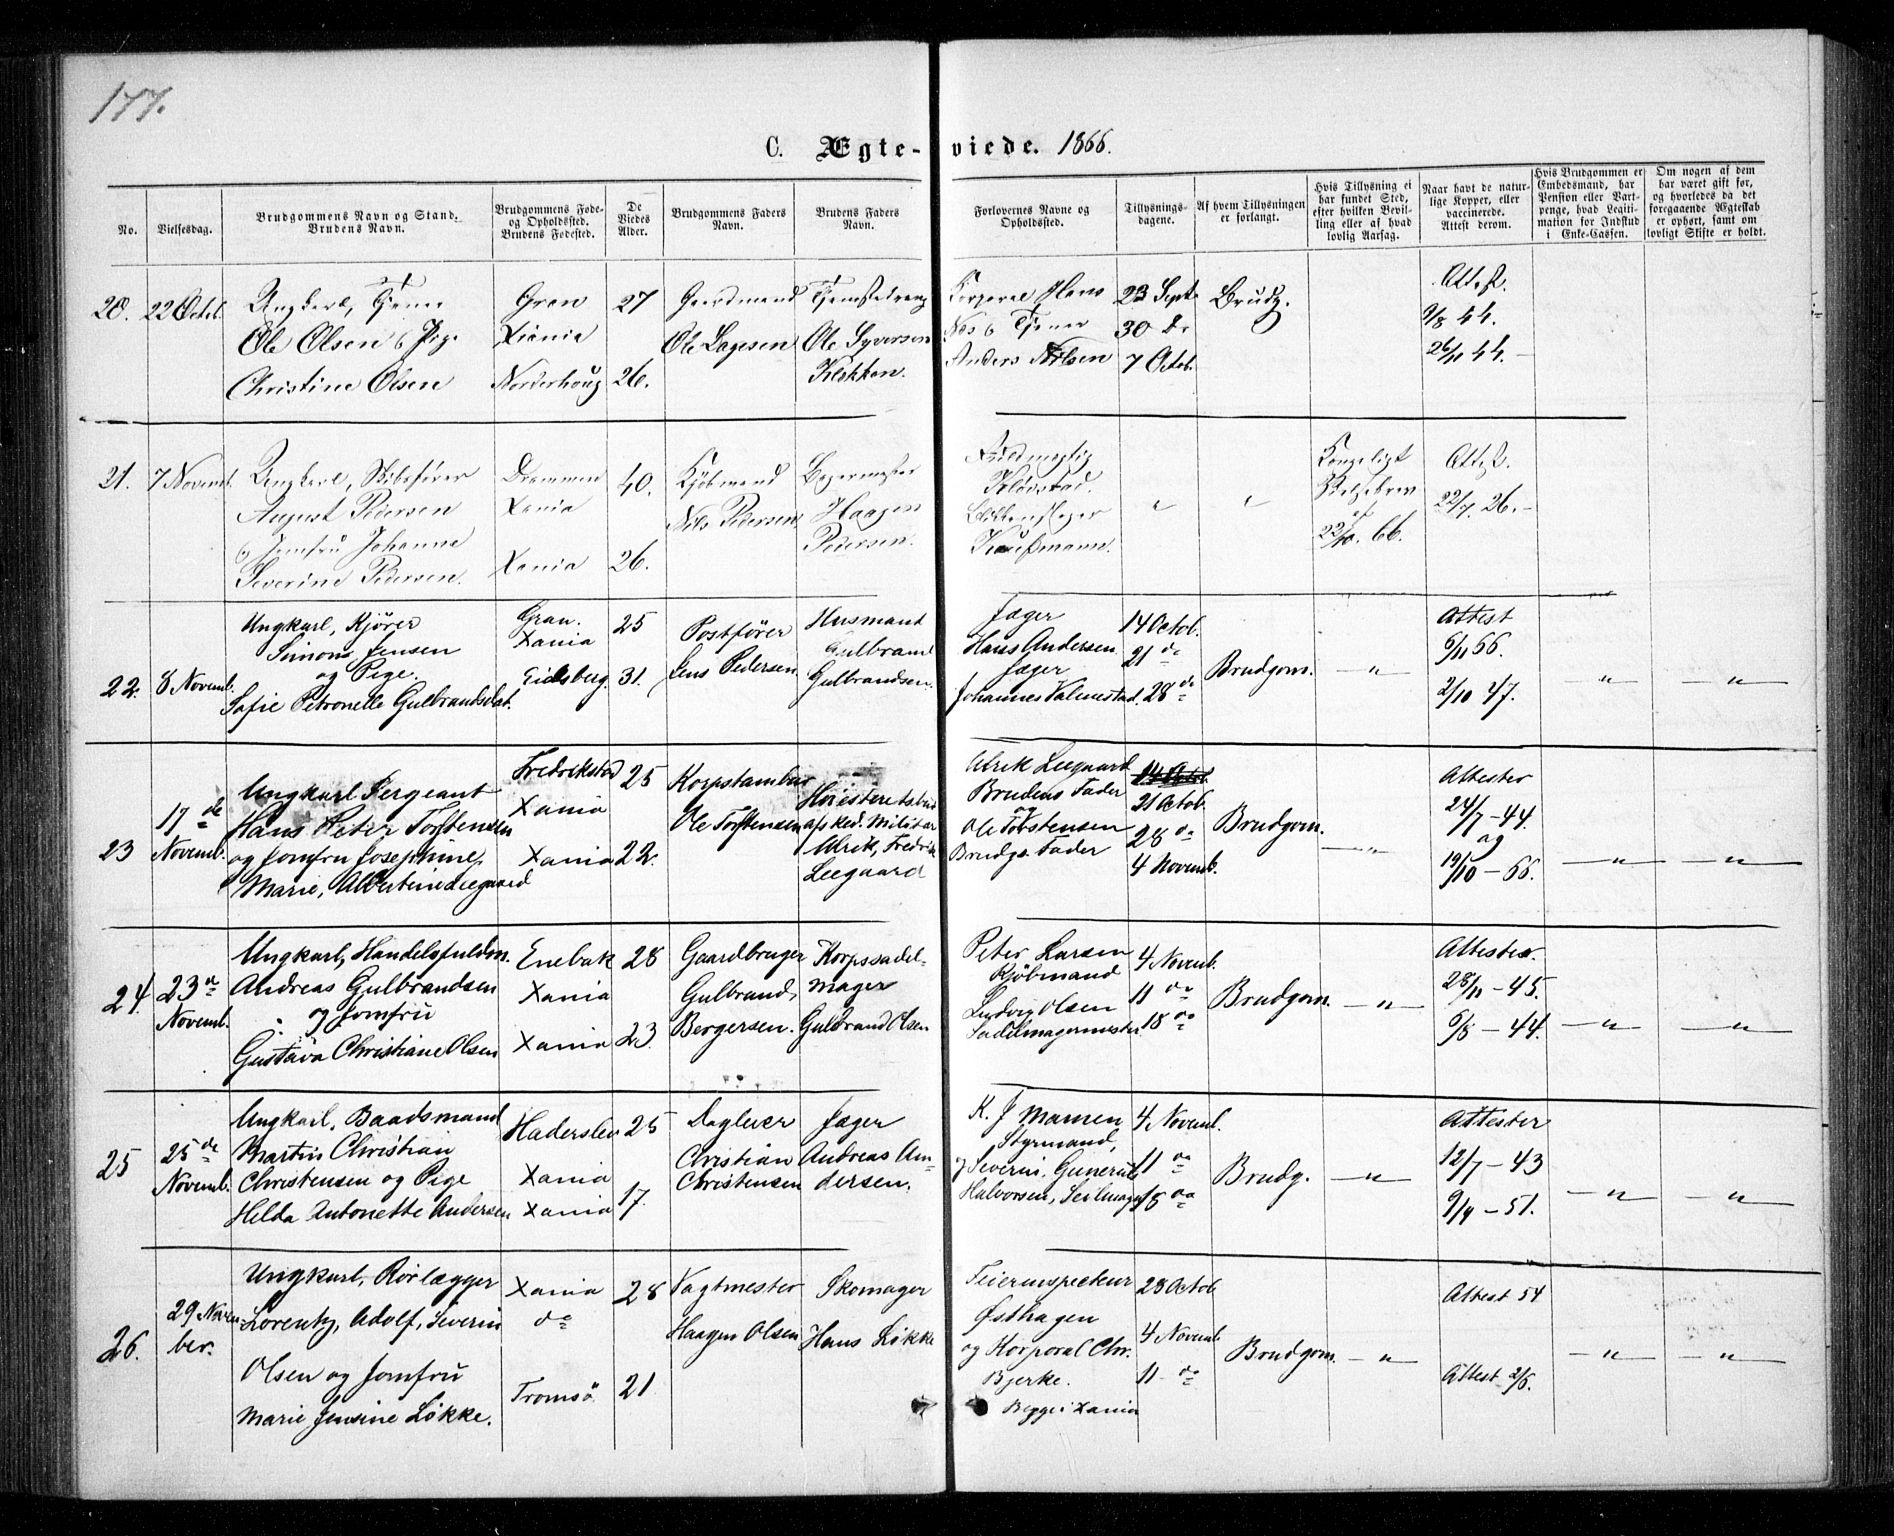 177.
C. Ægte-viede. 1866.
No.
Vielsesdag.
Brudgommens Navn og Stand.
Brudens Navn.
Brudgommens Føde-
og Opholdssted.
Brudens Fødested.
De
Viedes
Alder.
Brudgommens Faders
Navn.
Brudens Faders
Navn.
Forlovernes Navne og
Opholdssted.
Tillysnings-
dagene.
Af hvem Tillysningen
er forlangt.
Hvis Tillysning ei
har fundet Sted,
efter hvilken Bevil-
ling eller af hvad
lovlig Aarsag.
Naar havt de natur-
lige Kopper, eller
vaccinerede.
Attest derom.
Hvis Brudgommen er
Embedsmand, har
Pension eller Vart-
penge, hvad Legiti-
mation for Indskud
i Enke-Cassen.
Om nogen af dem
har været gift før,
og hvorledes da det
foregaaende Ægteskab
er ophørt, samt om
lovligt Skifte er holdt.
20.
22 Octob.
Ungkarl, Tjener
Ole Olsen og Pige
Christine Olsen
Gran
Xiania
Norderhoug
27
26.
Gaardmand
Ole Lagesen
Ole Syversen
Klekken.
Korporal Hans
Nes og Tjener
Anders Nilsen
23 Sept.
30 do
7 Octob.
Brudg.
Attest.
9/8 44.
26/11 44.
21.
7 Novemb.
Ungkarl, Skibsfører
August Pedersen
og Jomfru Johanne
Severine Pedersen.
Drammen
Xania
Xania
40.
26.
Kjøbmand
Nils Pedersen
Bagermester
Haagen
Pedersen.
Fuldmægtig
Kløvstad.
Kauffmann.
"
"
Kongeligt
af
22/10. 66.
Attest.
22/7. 26.
22.
8 Novemb.
Ungkarl, Kjører
Simons Jensen
og Pige.
Sofie Petronelle Gulbrandsdat.
Gran.
Xania
Eidsberg.
25
31.
Postfører
Jens Pedersen
Husmand
Gulbrand
Gulbrandsen.
Jæger
Hans Andersen
Jæger
Johannes Valmestad.
14 Octob.
21 do
28 do
Brudgom.
"
Attest
6/11 66.
2/10 47.
"
"
23
17 de
Novemb.
Ungkarl Sergeant
Hans Peter Torstensen
og Jomfru Josephine,
Marie, Albertine Leegaard
Fredrikstad
Xania
Xania
25
22.
Korpstambur
Ole Torstensen
Høiesteretsbud
afsked. Militær
Ulrik, Fredrik
Leegaard
Ulrik Leegaard
Brudens Fader
og
Ole Torstensen
Brudgs. Fader
14 Octob.
21 Octob.
28 do
4 Novemb.
Brudgom.
"
Attester
24/7 - 44.
og
19/10 - 66.
"
"
24.
23 de
Novemb.
Ungkarl, Handelsfuldm.
Andreas Gulbrandsen
og Jomfru
Gustava Christiane Olsen
Enebak
Xania
Xania
28
23.
Gaardbruger
Gulbrand,
Bergersen.
Korpssadel-
mager
Gulbrand Olsen
Peter Larsen
Kjøbmand
Ludvig Olsen
Sadelmagermester
4 Novemb.
11 do
18 do
Brudgom.
"
Attester.
28/11 - 45.
6/8 - 44.
"
"
25
25 de
Novemb.
Ungkarl, Baadsmand
Martin Christian
Christensen og Pige
Helda Antonette Andersen
Haderslev
Xania
Xania
25
17.
Dagleier
Christian
Christensen
Jæger
Andreas An-
dersen.
K. J. Mamen
Styrmand,
og Severin, Gunerius
Halvorsen, Seilmager
4 Novemb.
11 do
18 do
Brudg.
"
Attester
12/7 - 43
9/4 - 51.
"
"
26.
29 Novem-
ber.
Ungkarl, Rørlægger
Lorentz, Adolf, Severin
Olsen og Jomfru
Marie Jensine Løkke.
Xania
do
Tromsø
28
21
Vagtmester
Haagen Olsen
Skomager
Hans Løkke
Feierinspecteur
Østhagen
og Korporal Chr.
Bjerke.
Begge i Xania
28 Octob
4 Novemb
11 do
Brudgom.
"
Attest 54
Attest 2/6.
"
"